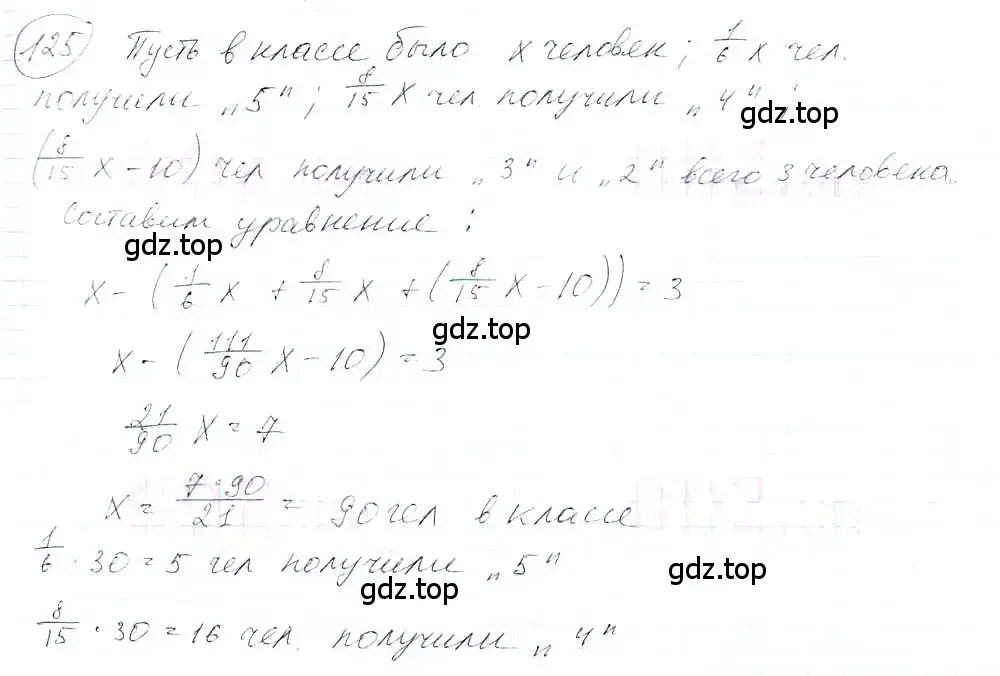 125 Пусть в классе было x человек; 1/6 x чел.
получили „5"; 8/15 x чел получили „4";
(8/15 x - 10) чел получили „3" и „2" всего 3 человека.
Составим уравнение:
gdz.top
x - (1/6 x + 8/15 x + (8/15 x - 10)) = 3
gdz.top
x - (111/90 x - 10) = 3
21/90 x = 7
x = 7·90/21 = 90 чел в классе
1/6 · 30 = 5 чел получили „5"
gdz.top
gdz.top
8/15 · 30 = 16 чел. получили „4"